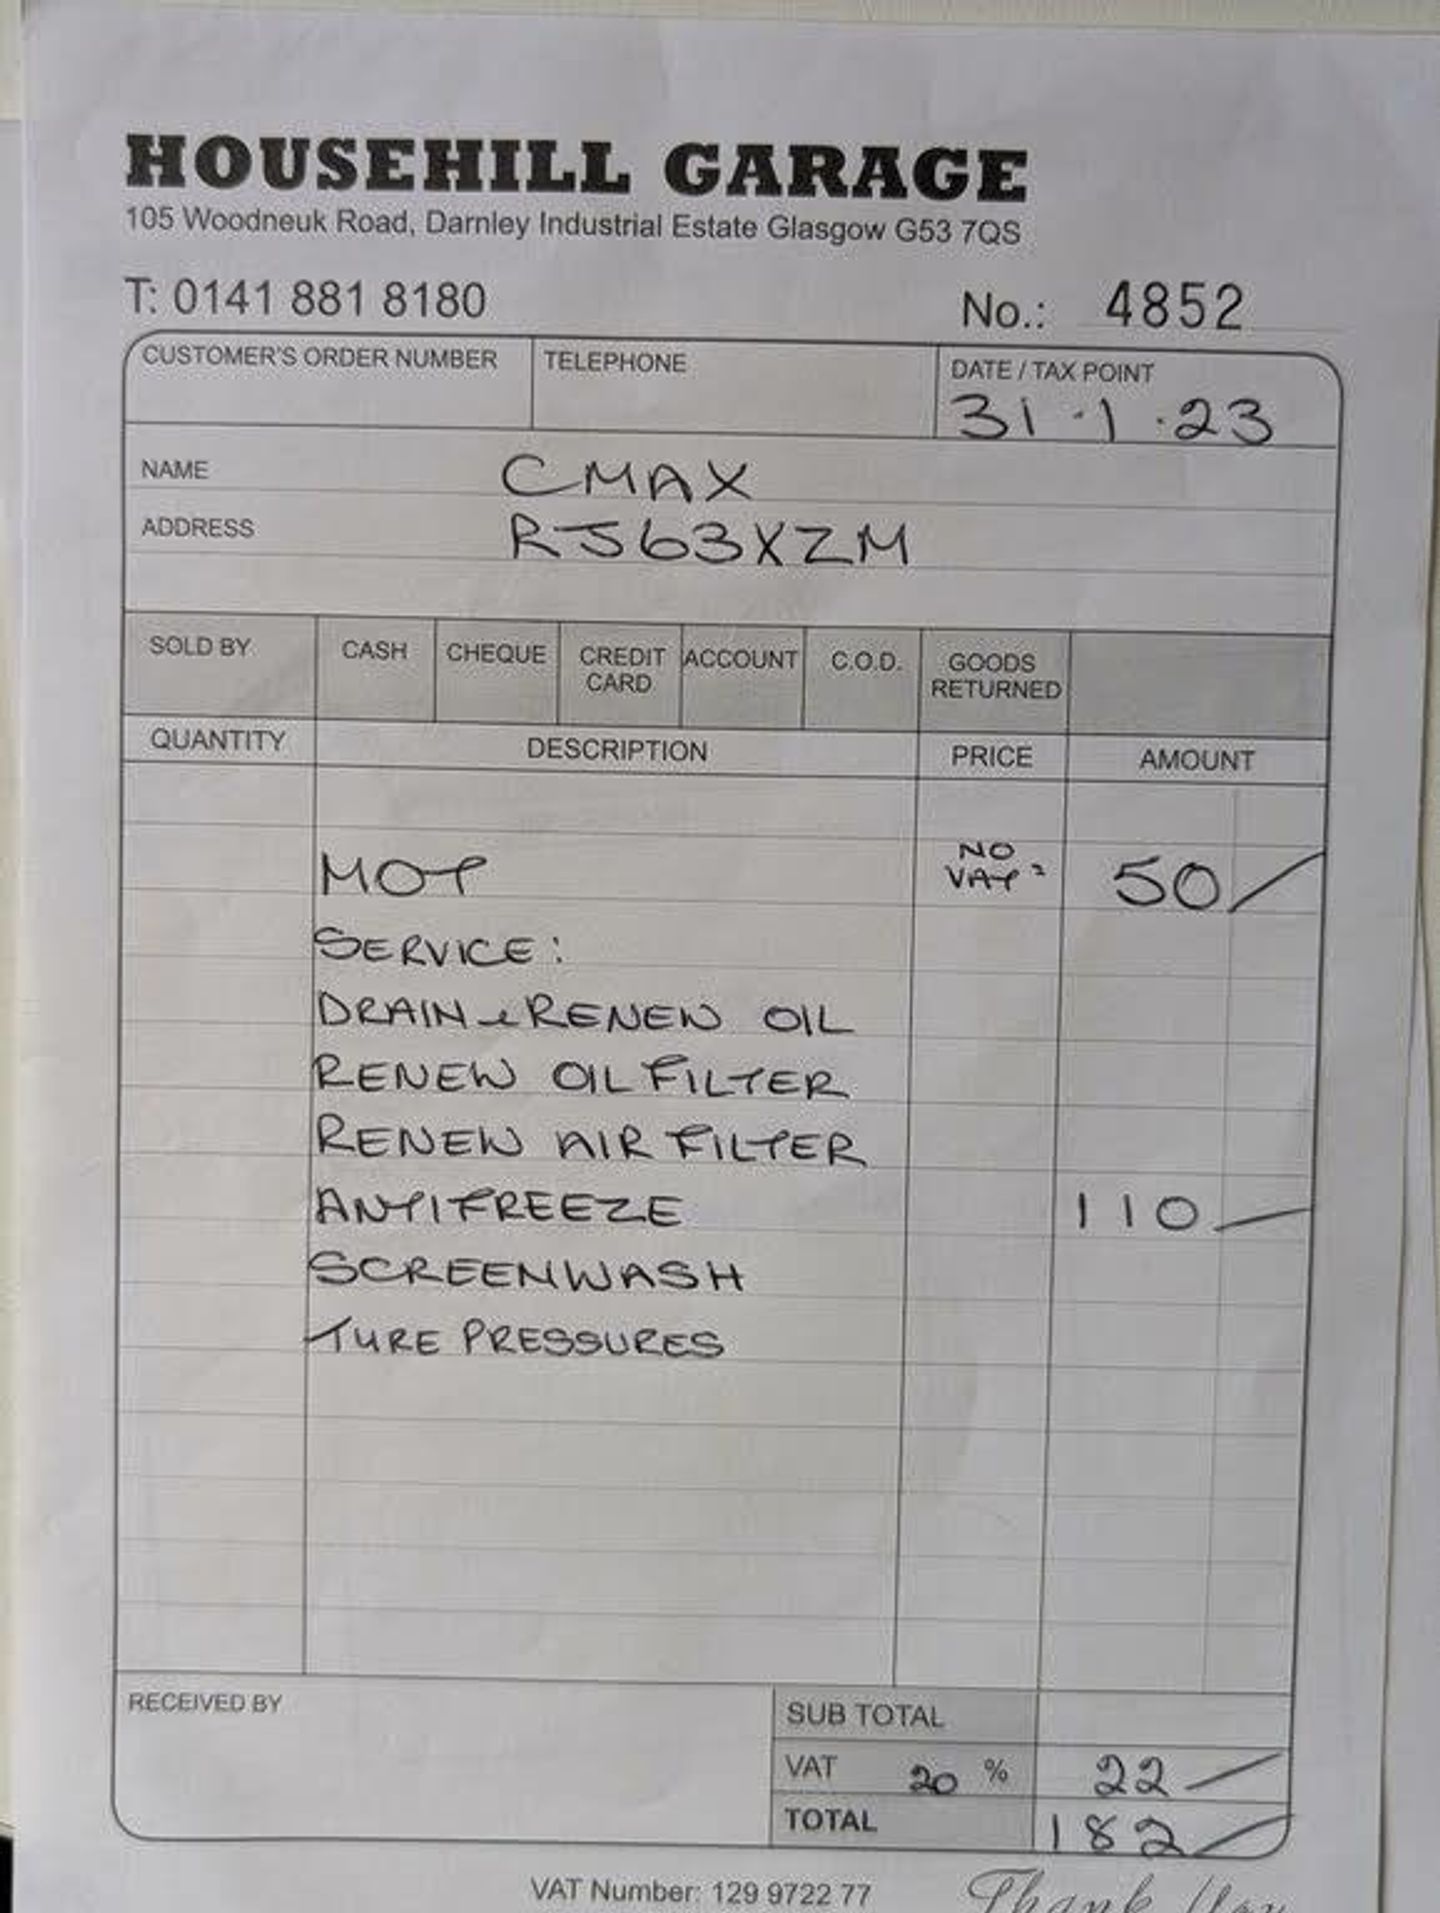 HOUSEHILL GARAGE
105 Woodneuk Road, Darnley Industrial Estate Glasgow G53 7QS
T: 0141 881 8180 No.: 4852
CUSTOMER'S ORDER NUMBER TELEPHONE DATE / TAX POINT
31.1.23
NAME CMAX
ADDRESS RJ63XZM
SOLD BY CASH CHEQUE CREDIT CARD ACCOUNT C.O.D. GOODS RETURNED
QUANTITY DESCRIPTION PRICE AMOUNT
MOT NO VAT 50/
SERVICE:
DRAIN & RENEW OIL
RENEW OIL FILTER
RENEW AIR FILTER
ANTIFREEZE 110/
SCREENWASH
TYRE PRESSURES
RECEIVED BY SUB TOTAL
VAT 20 % 22/
TOTAL 182/
VAT Number: 129 9722 77 Thank You